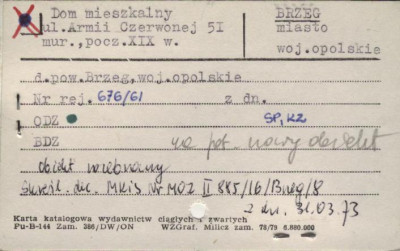 Dom mieszkalny BRZEG
ul.Armii Czerwonej 51 miasto
mur.,pocz.XIX w. woj.opolskie
d.pow.Brzeg,woj.opolskie
Nr rej. 676/61 z dn.
ODZ SP, KZ
BDZ na pot. nowy obiekt
obiekt rozebrany
skreśl. dec. MKiS Nr MOZ II 885/16/Brzeg/8
z dn. 31.03.73
Karta katalogowa wydawnictw ciągłych i zwartych
Pu-B-144 Zam. 266/DW/ON WZGraf. Milicz zam. 78/79 6.880.000